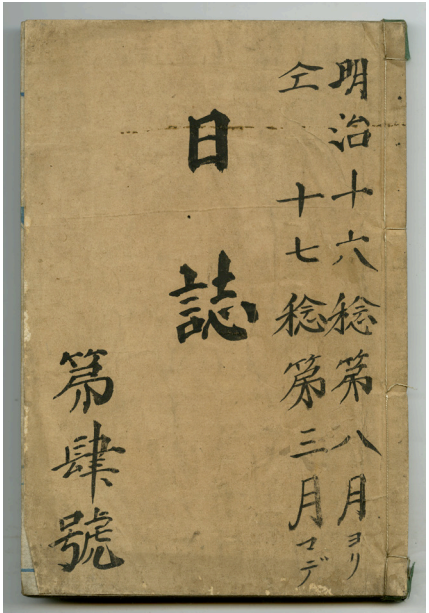 明治十六稔第八月ヨリ
仝十七稔第三月マデ
日誌
第肆號